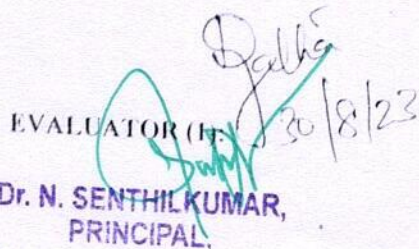 30/8/23
EVALUATOR (I):
Dr. N. SENTHILKUMAR,
PRINCIPAL.